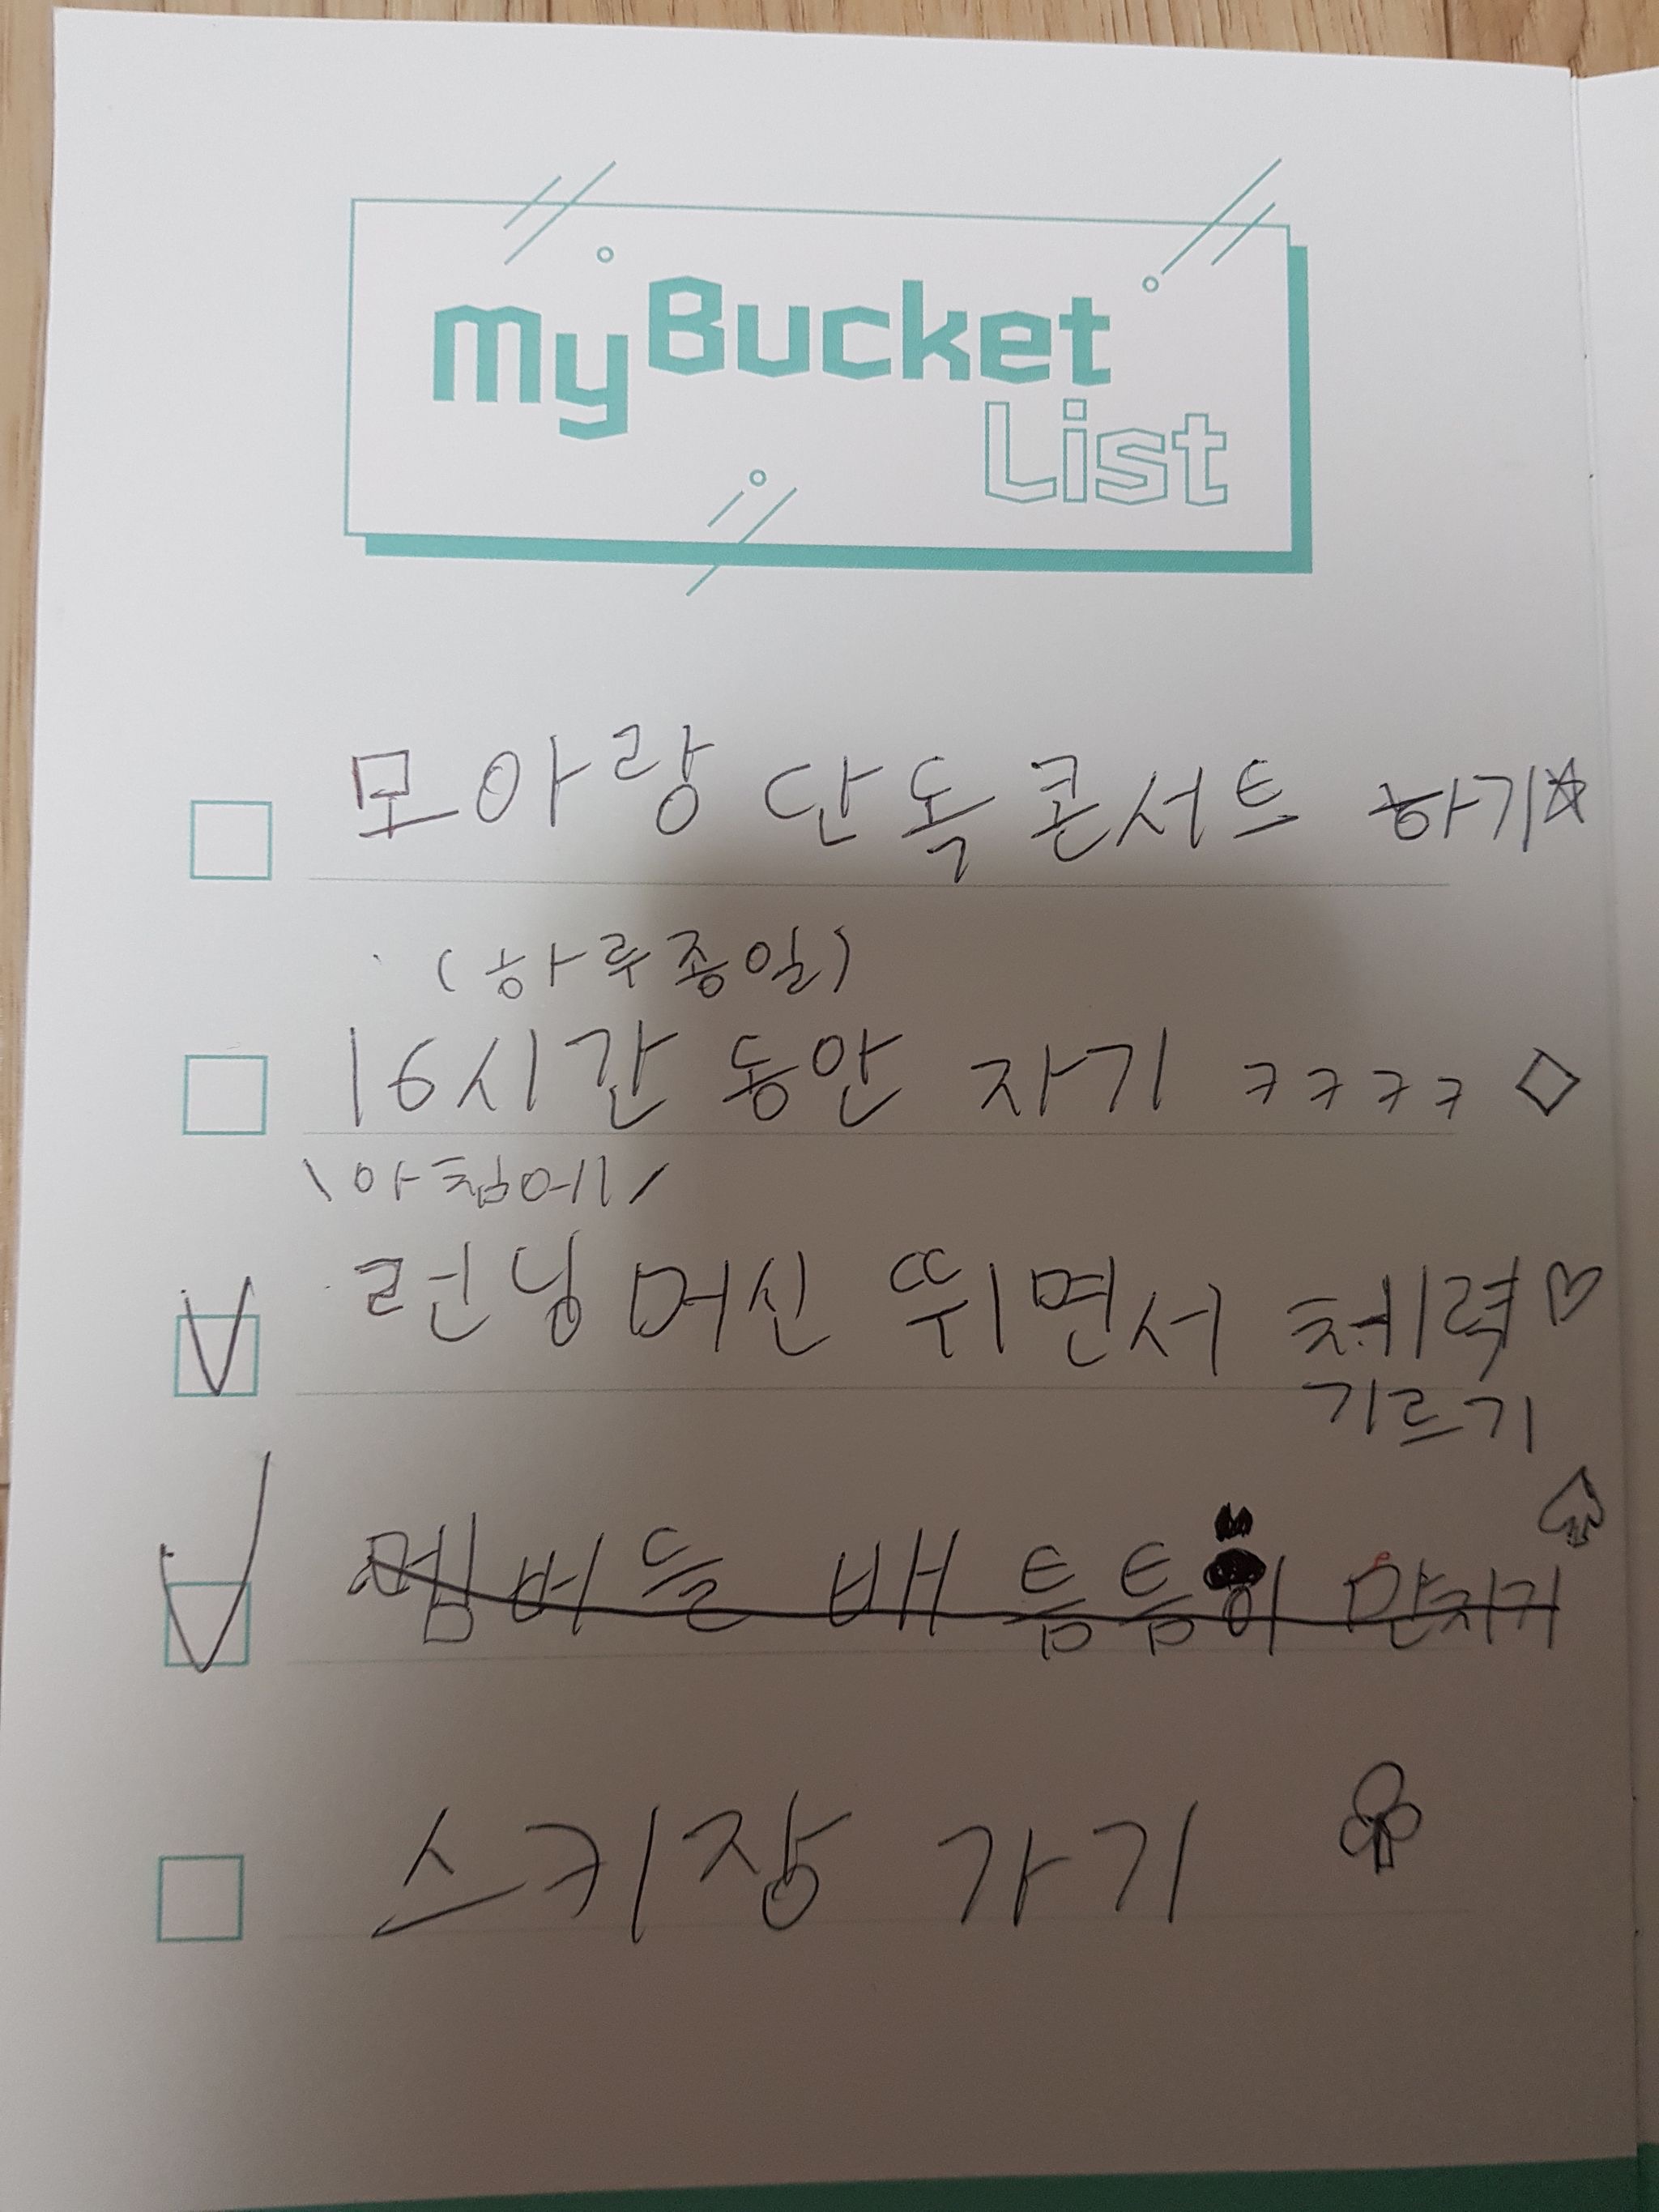 My Bucket
List
모아랑 단독 콘서트 하기☆
(하루종일)
16시간 동안 자기 ㅋㅋㅋㅋ ◇
\아침에/
런닝머신 뛰면서 체력♡
기르기
멤버들 배 틈틈이 만지기 ♤
스키장 가기 ♧